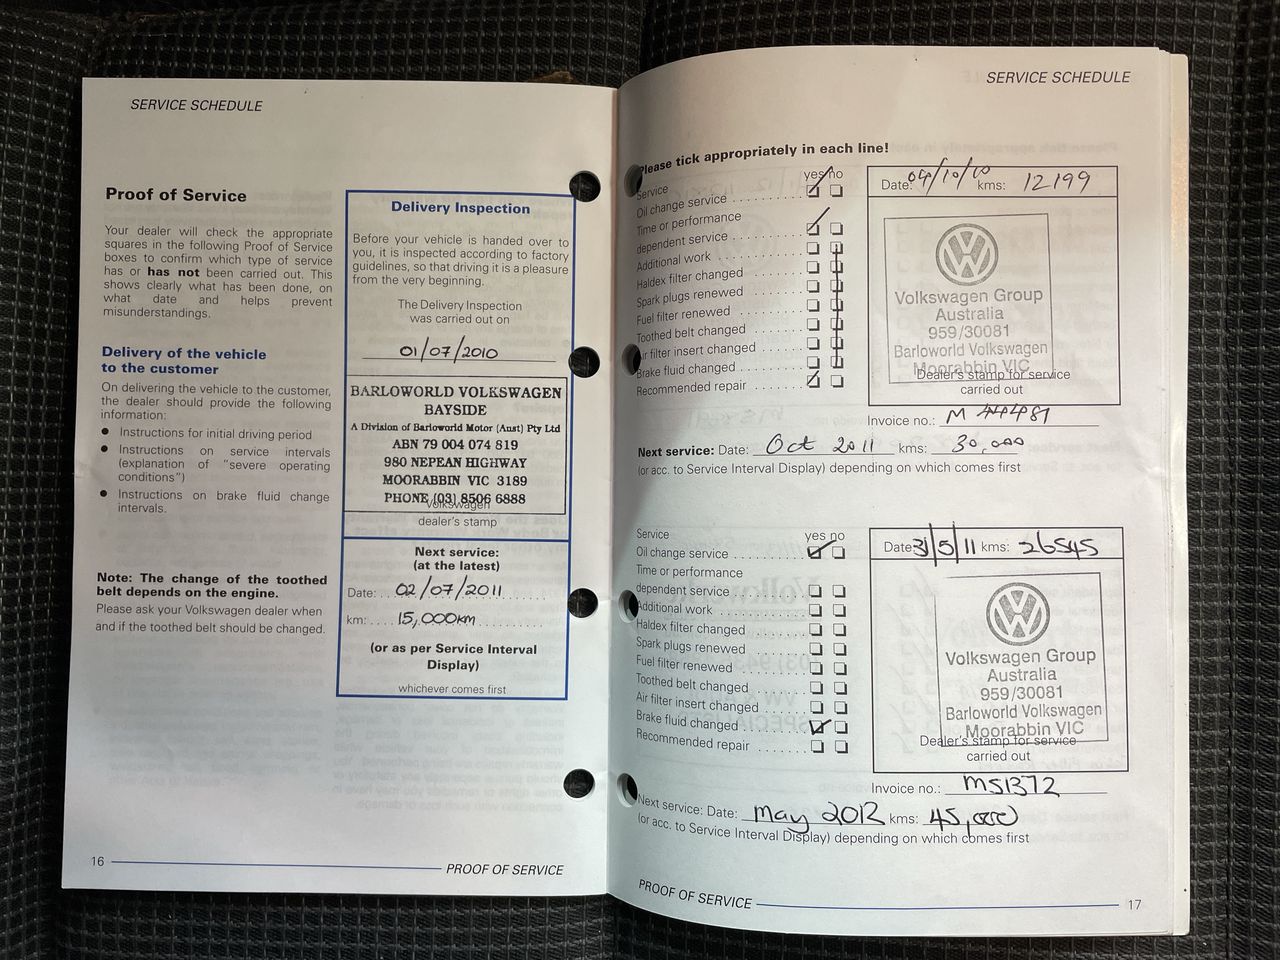 SERVICE SCHEDULE
Proof of Service
Your dealer will check the appropriate
squares in the following Proof of Service
boxes to confirm which type of service
has or has not been carried out. This
shows clearly what has been done, on
what date and helps prevent
misunderstandings.
Delivery of the vehicle
to the customer
On delivering the vehicle to the customer,
the dealer should provide the following
information:
● Instructions for initial driving period
● Instructions on service intervals
(explanation of "severe operating
conditions")
● Instructions on brake fluid change
intervals.
Note: The change of the toothed
belt depends on the engine.
Please ask your Volkswagen dealer when
and if the toothed belt should be changed.
Delivery Inspection
Before your vehicle is handed over to
you, it is inspected according to factory
guidelines, so that driving it is a pleasure
from the very beginning.
The Delivery Inspection
was carried out on
01/07/2010
BARLOWORLD VOLKSWAGEN
BAYSIDE
A Division of Barloworld Motor (Aust) Pty Ltd
ABN 79 004 074 819
980 NEPEAN HIGHWAY
MOORABBIN VIC 3189
PHONE (03) 8506 6888
Volkswagen
dealer's stamp
Next service:
(at the latest)
Date: 02/07/2011
km: 15,000km
(or as per Service Interval
Display)
whichever comes first
16
PROOF OF SERVICE
SERVICE SCHEDULE
Please tick appropriately in each line!
Service yes no
Oil change service
Time or performance
dependent service
Additional work
Haldex filter changed
Spark plugs renewed
Fuel filter renewed
Toothed belt changed
Air filter insert changed
Brake fluid changed
Recommended repair
Date: 04/10/10 kms: 12199
Volkswagen Group
Australia
959/30081
Barloworld Volkswagen
Moorabbin VIC
Dealer's stamp for service
carried out
Invoice no.:
Next service: Date: Oct 2011 kms: 30,000
(or acc. to Service Interval Display) depending on which comes first
Service yes no
Oil change service
Time or performance
dependent service
Additional work
Haldex filter changed
Spark plugs renewed
Fuel filter renewed
Toothed belt changed
Air filter insert changed
Brake fluid changed
Recommended repair
Date: 31/5/11 kms: 26545
Volkswagen Group
Australia
959/30081
Barloworld Volkswagen
Moorabbin VIC
Dealer's stamp for service
carried out
Invoice no.: M51372
Next service: Date: May 2012 kms: 45,000
(or acc. to Service Interval Display) depending on which comes first
PROOF OF SERVICE
17